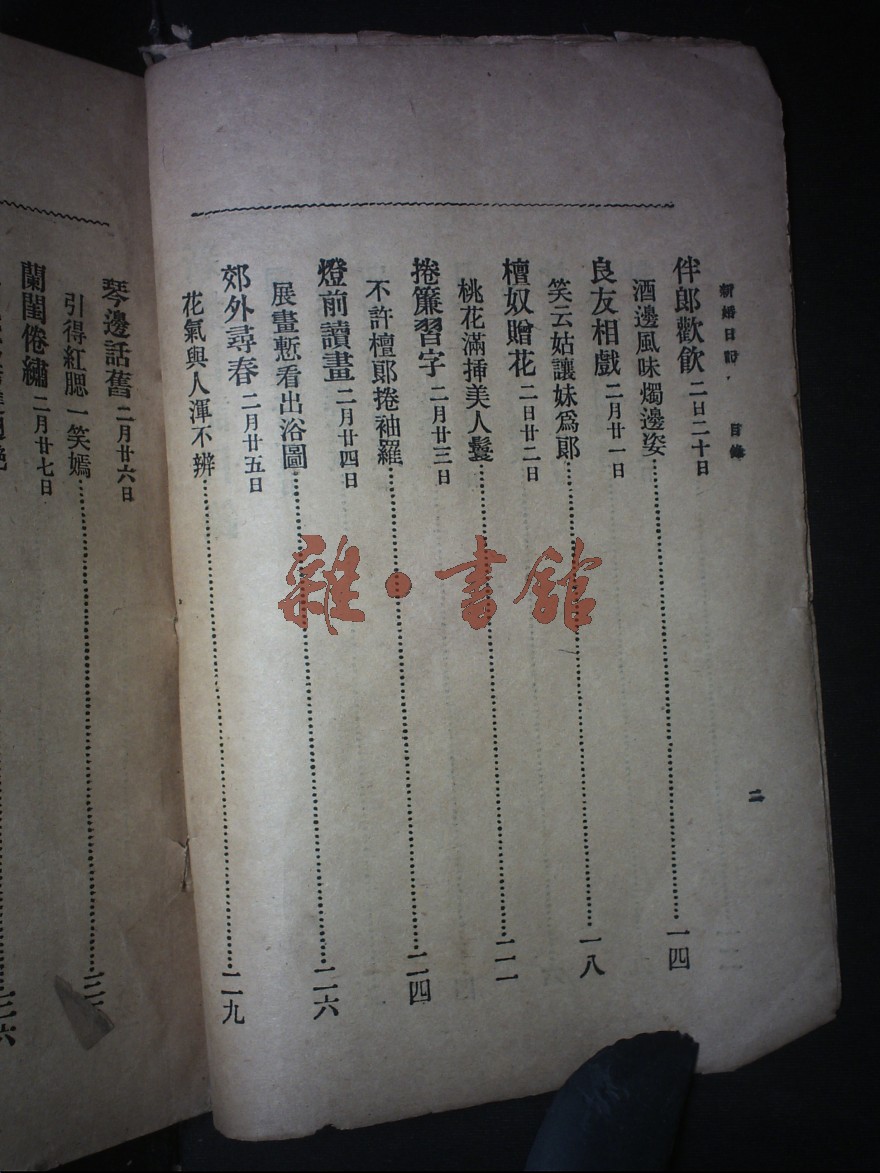 新婚日記・ 目錄
二
伴郎歡飮 二日二十日
酒邊風味燭邊姿……一四
良友相戲 二月廿一日
笑云姑讓妹爲郞……一八
檀奴贈花 二日廿二日
桃花滿揷美人鬟……二一
捲簾習字 二月廿三日
不許檀郞捲袖羅……二四
燈前讀畫 二月廿四日
展畫慙看出浴圖……二六
郊外尋春 二月廿五日
花氣與人渾不辨……二九
琴邊話舊 二月廿六日
引得紅腮一笑嫣……三
蘭閨倦繡 二月廿七日
三六
雜·書館